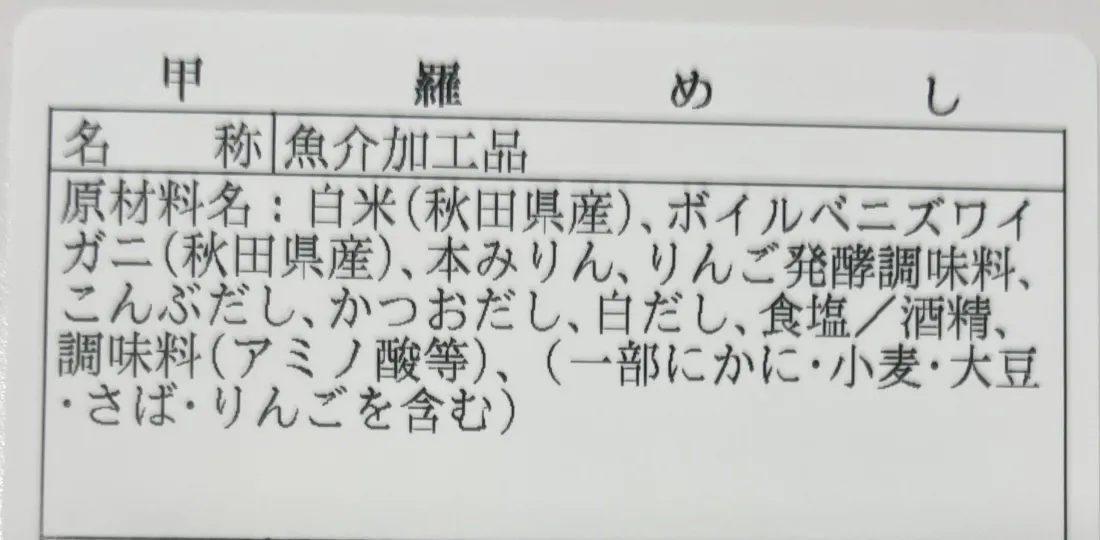 甲羅めし
名称 魚介加工品
原材料名：白米(秋田県産)、ボイルベニズワイ
ガニ(秋田県産)、本みりん、りんご発酵調味料、
こんぶだし、かつおだし、白だし、食塩／酒精、
調味料(アミノ酸等)、(一部にかに・小麦・大豆
・さば・りんごを含む)